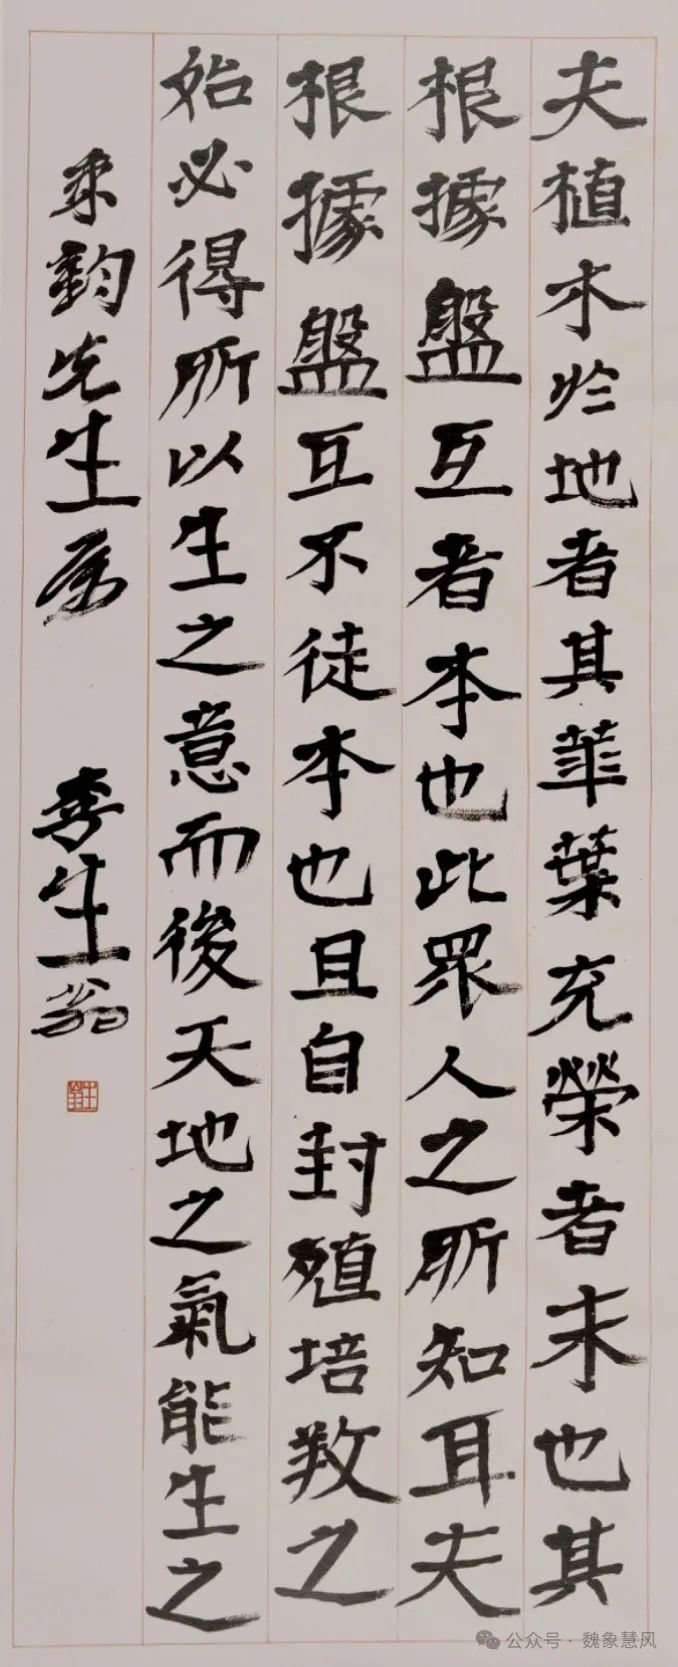 夫植木於地者其華葉充榮者末也其
根據盤互者本也此眾人之所知耳夫
根據盤互不徒本也且自封殖培𢼝之
始必得所以生之意而後天地之氣能生之
先生屬 李生翁
生翁
公众号·魏象慧风